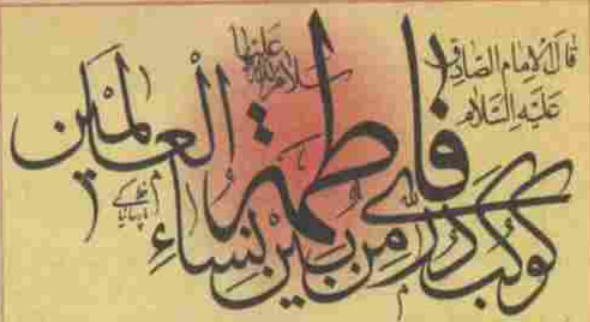 قال الإمام الصادق
عليه السلام
سلام الله عليها
فاطمة
كوكب دري من بين نساء العالمين